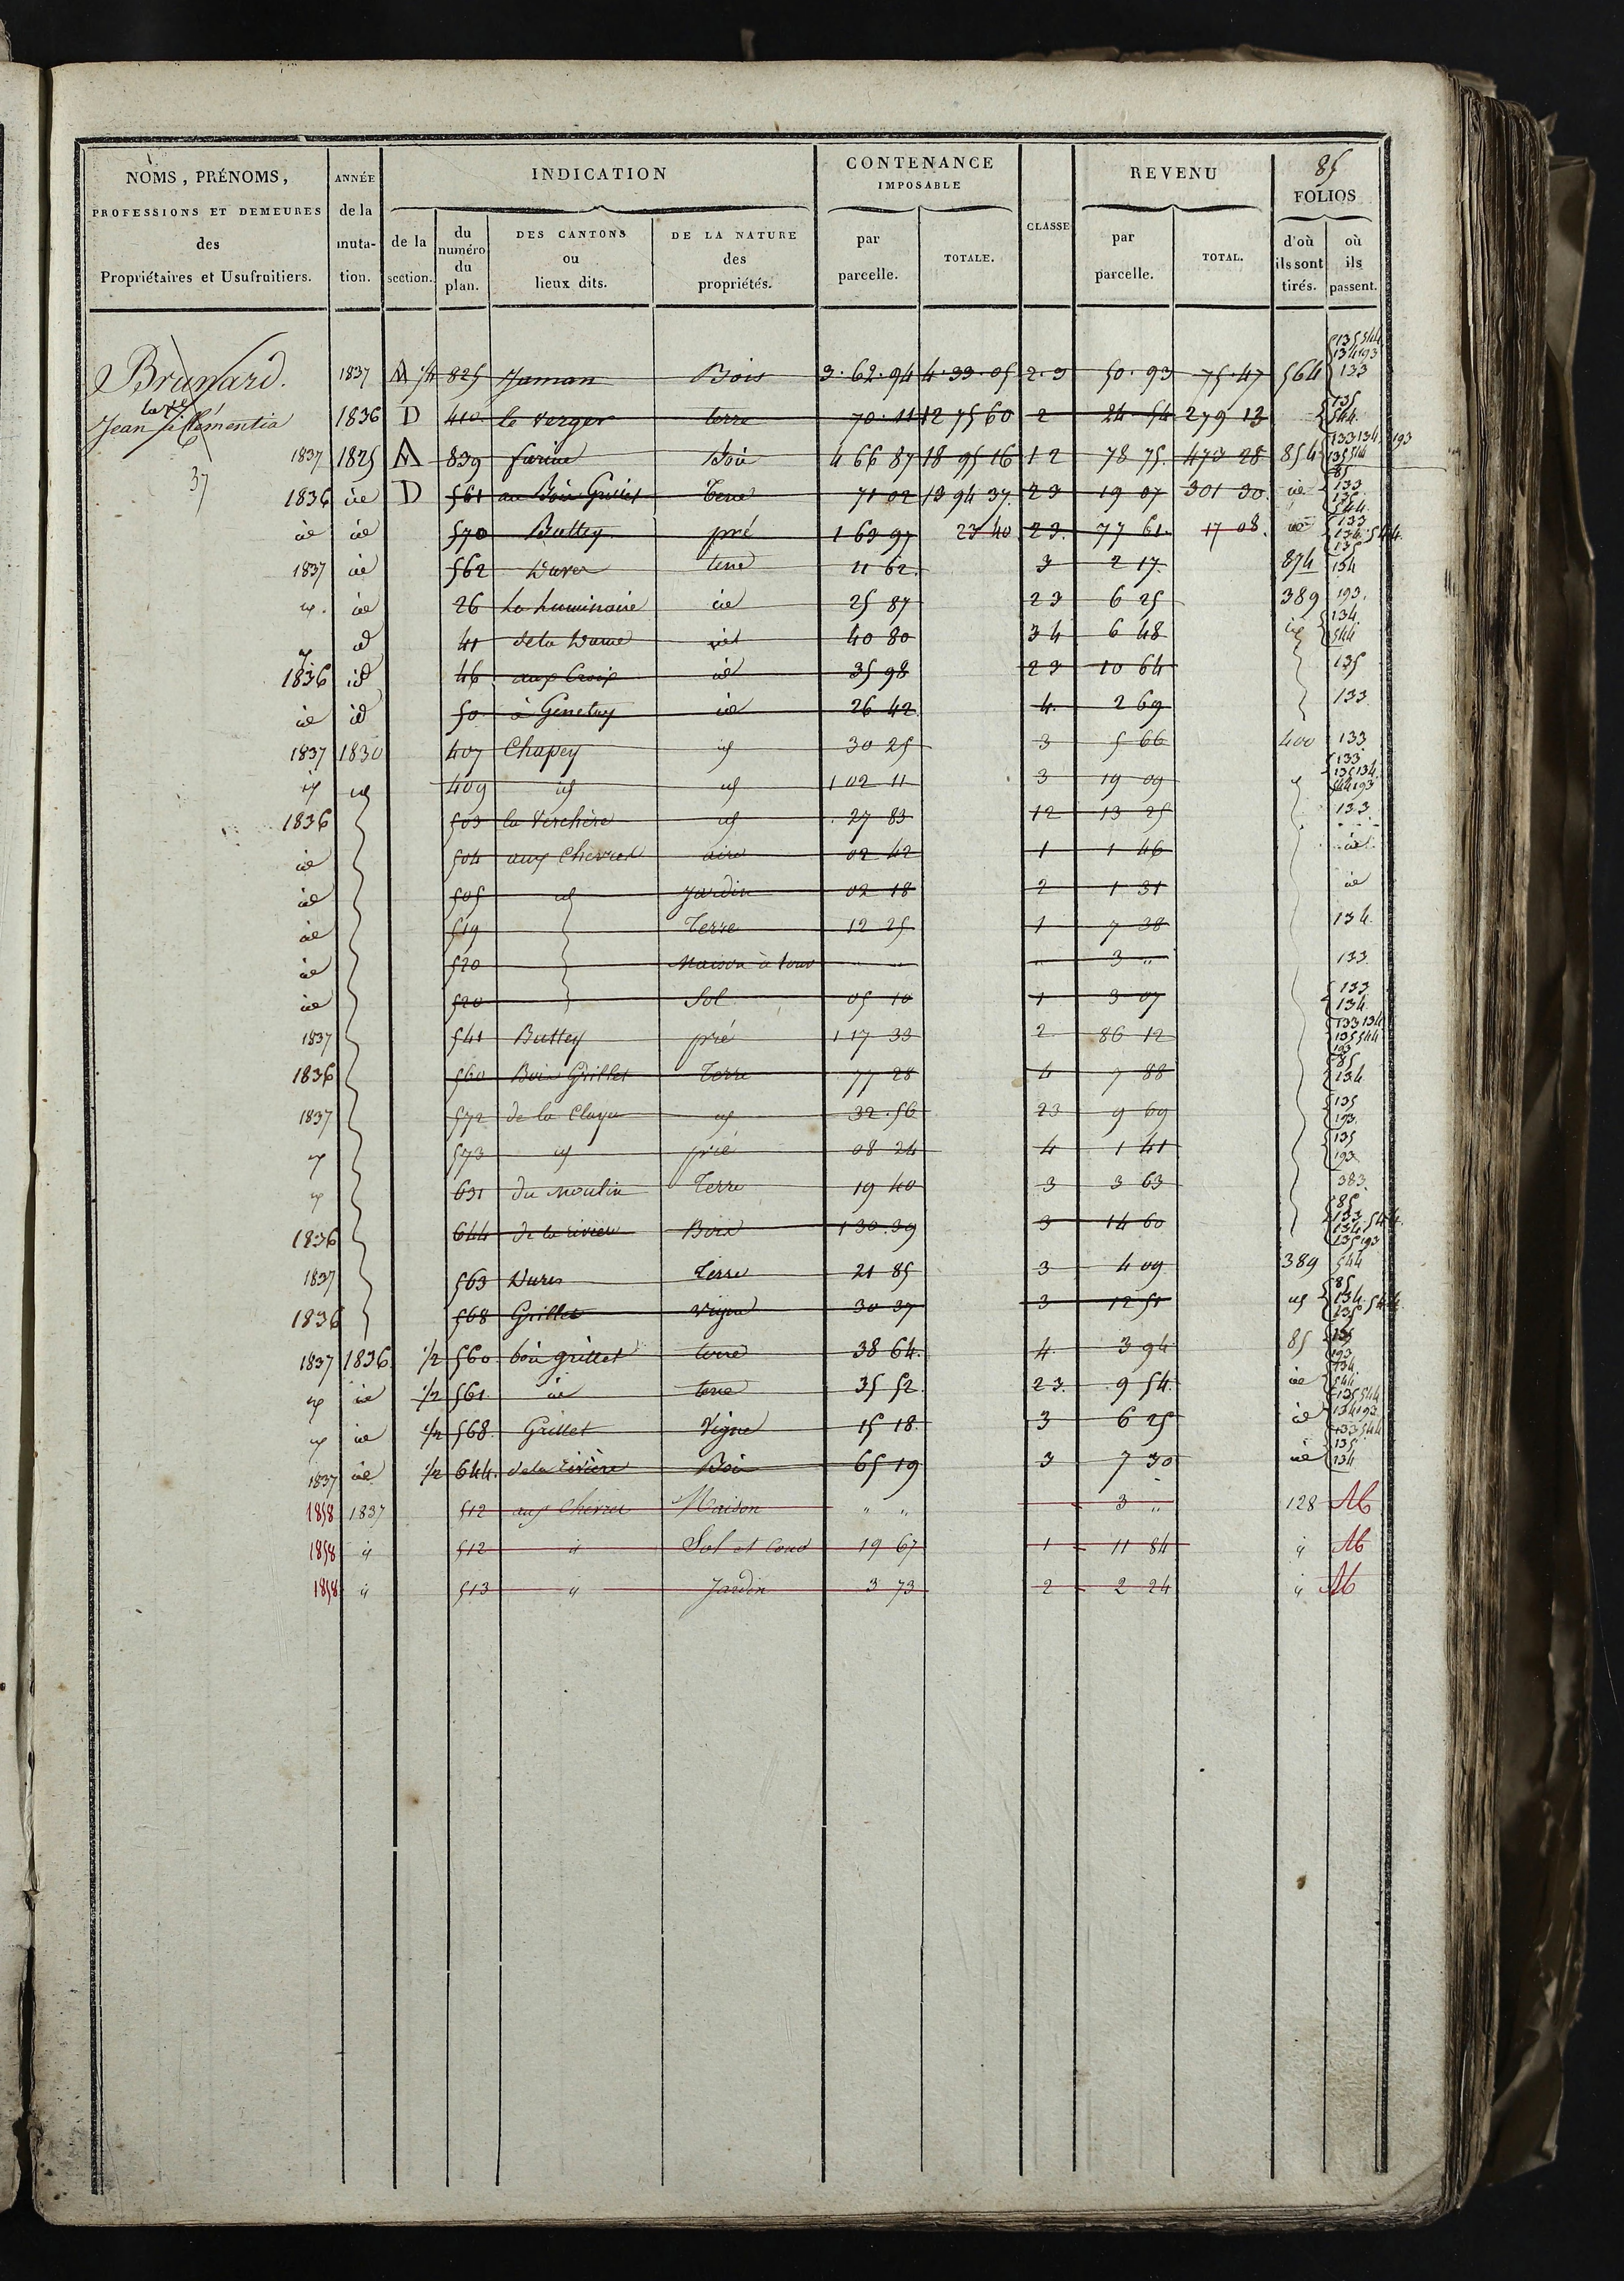 85
NOMS, PRÉNOMS, PROFESSIONS ET DEMEURES des Propriétaires et Usufruitiers.
ANNÉE de la muta- tion.
INDICATION
de la section.
du numéro du plan.
DES CANTONS ou lieux dits.
DE LA NATURE des propriétés.
CONTENANCE IMPOSABLE
par parcelle.
TOTALE.
CLASSE
REVENU
par parcelle.
TOTAL.
FOLIOS
d'où ils sont tirés.
où ils passent.
135 544
134 193
Brunard. 1837 A 825 Jaman Bois 3.62.94 4.33.05 2.3 50.93 75.47 564 133
Jean 1836 D 410 le verger terre 70.11 12 75 60 2 24 54 279 13 135 544
37
1837 1825 A 839 farine Bois 4 66 87 18 95 16 1 2 78 75 473 28 854 133 134 193 135 544
1836 id D 561 au Bois Grillet terre 71 02 13 94 37 23 19 07 301 30 id 85 133 135 544
id id 570 Buttey pré 1 63 97 23 40 23 77 61 17 08 id 133 134 544 135
1837 id 562 terre 11 62 3 2 17 874 134
id 26 Le Luminaire id 25 87 23 6 25 389 193
id 41 de la id 40 80 34 6 48 134 544
1836 id 46 aux Croix id 35 98 23 10 64 135
id id 50 à Genetay id 26 42 4 2 69 133
1837 1830 407 Chapey id 30 25 3 5 66 400 133
id id 409 id id 1 02 11 3 19 09 id 133 135 134 544 193
1836 503 la Verchère id 27 83 12 13 25 133
id 504 aux Chevres aire 02 42 1 1 46 id
id 505 id Jardin 02 18 2 1 31 id
id 519 Terre 12 25 1 7 38 134
id 520 Maison à four " " " 3 " 133
id 520 Sol 05 10 1 3 07 133 134
1837 541 Buttey pré 1 17 33 2 86 12 133 134 135 544 193
1836 560 Bois Grillet Terre 77 28 4 7 88 85 134
1837 572 de la Claye id 32.56 23 9 69 135 193
573 id pré 08 24 4 1 41 135 193
631 du moulin Terre 19 40 3 3 63 383
1836 644 de la rivière Bois 1 30.39 3 14 60 85 133 134 544 135 193
1837 563 Terre 21 85 3 4 09 389 544
1836 568 Grillet vigne 30 37 3 12 51 id 85 134 544 135
1837 1836 1/2 560 bois grillet terre 38 64 4 3 94 85 135 193
id 1/2 561 id terre 35 52 23 9 54 id 134 544
id 1/2 568 Grillet Vigne 15 18 3 6 25 id 135 544 134 193
1837 id 1/2 644 de la rivière Bois 65 19 3 7 30 id 133 544 135 134
1858 1837 512 aux Chevres Maison " " 3 " 128
1858 id 512 id Sol et Cour 19 67 1 11 84 id
1858 id 513 id Jardin 3 73 2 2 24 id